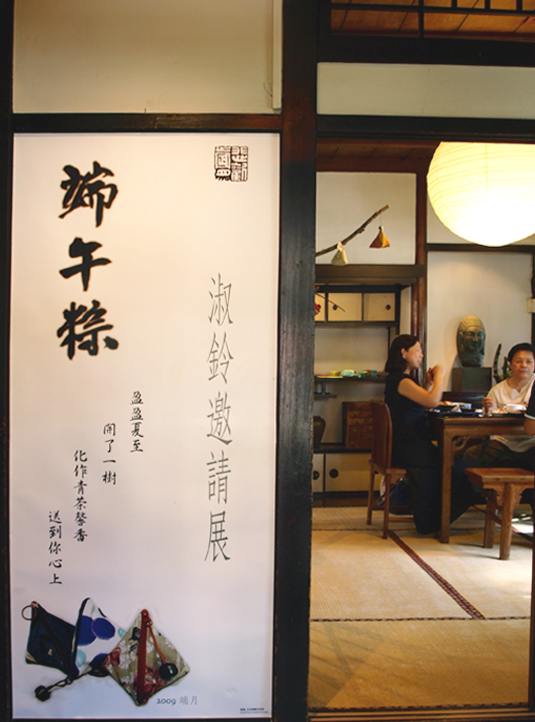 淑鈴邀請展
端午粽
盈盈夏至
開了一樹
化作青茶馨香
送到你心上
2009 端月